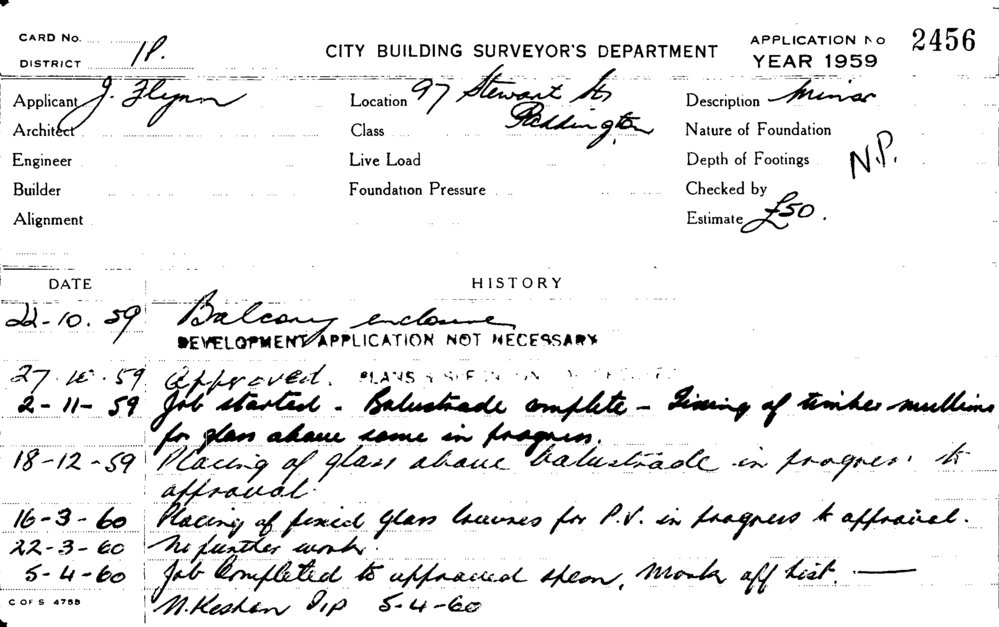 CARD No.
DISTRICT 1P.
CITY BUILDING SURVEYOR'S DEPARTMENT
APPLICATION No 2456
YEAR 1959
Applicant J. Flynn
Location 97 Stewart St,
Paddington
Description Minor
Architect
Class
Nature of Foundation
Engineer
Live Load
Depth of Footings N.P.
Builder
Foundation Pressure
Checked by
Alignment
Estimate £50.
DATE HISTORY
22-10.59 Balcony enclosure
DEVELOPMENT APPLICATION NOT NECESSARY
27.10.59 Approved. PLANS &
2-11-59 Job started - Balustrade complete - Fixing of timber mullions
for glass above same in progress.
18-12-59 Placing of glass above balustrade in progress to
approval.
16-3-60 Placing of fixed glass louvres for P.V. in progress to approval.
22-3-60 No further work.
5-4-60 Job Completed to approved specn. Mark off list.
N. Keshan 5-4-60
C OF S 4755